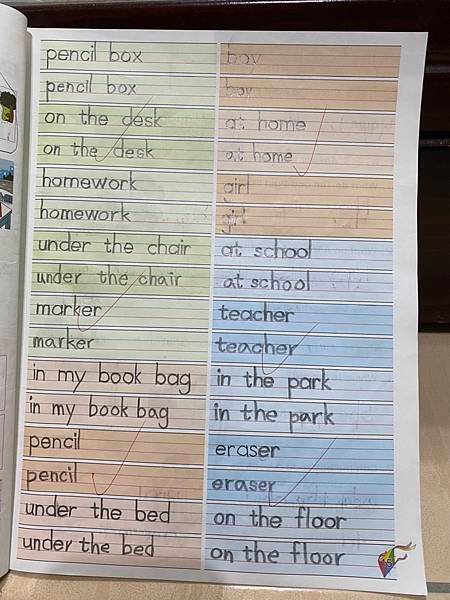 pencil box
pencil box
on the desk
on the desk
homework
homework
under the chair
under the chair
marker
marker
in my book bag
in my book bag
pencil
pencil
under the bed
under the bed
boy
boy
at home
at home
girl
girl
at school
at school
teacher
teacher
in the park
in the park
eraser
eraser
on the floor
on the floor